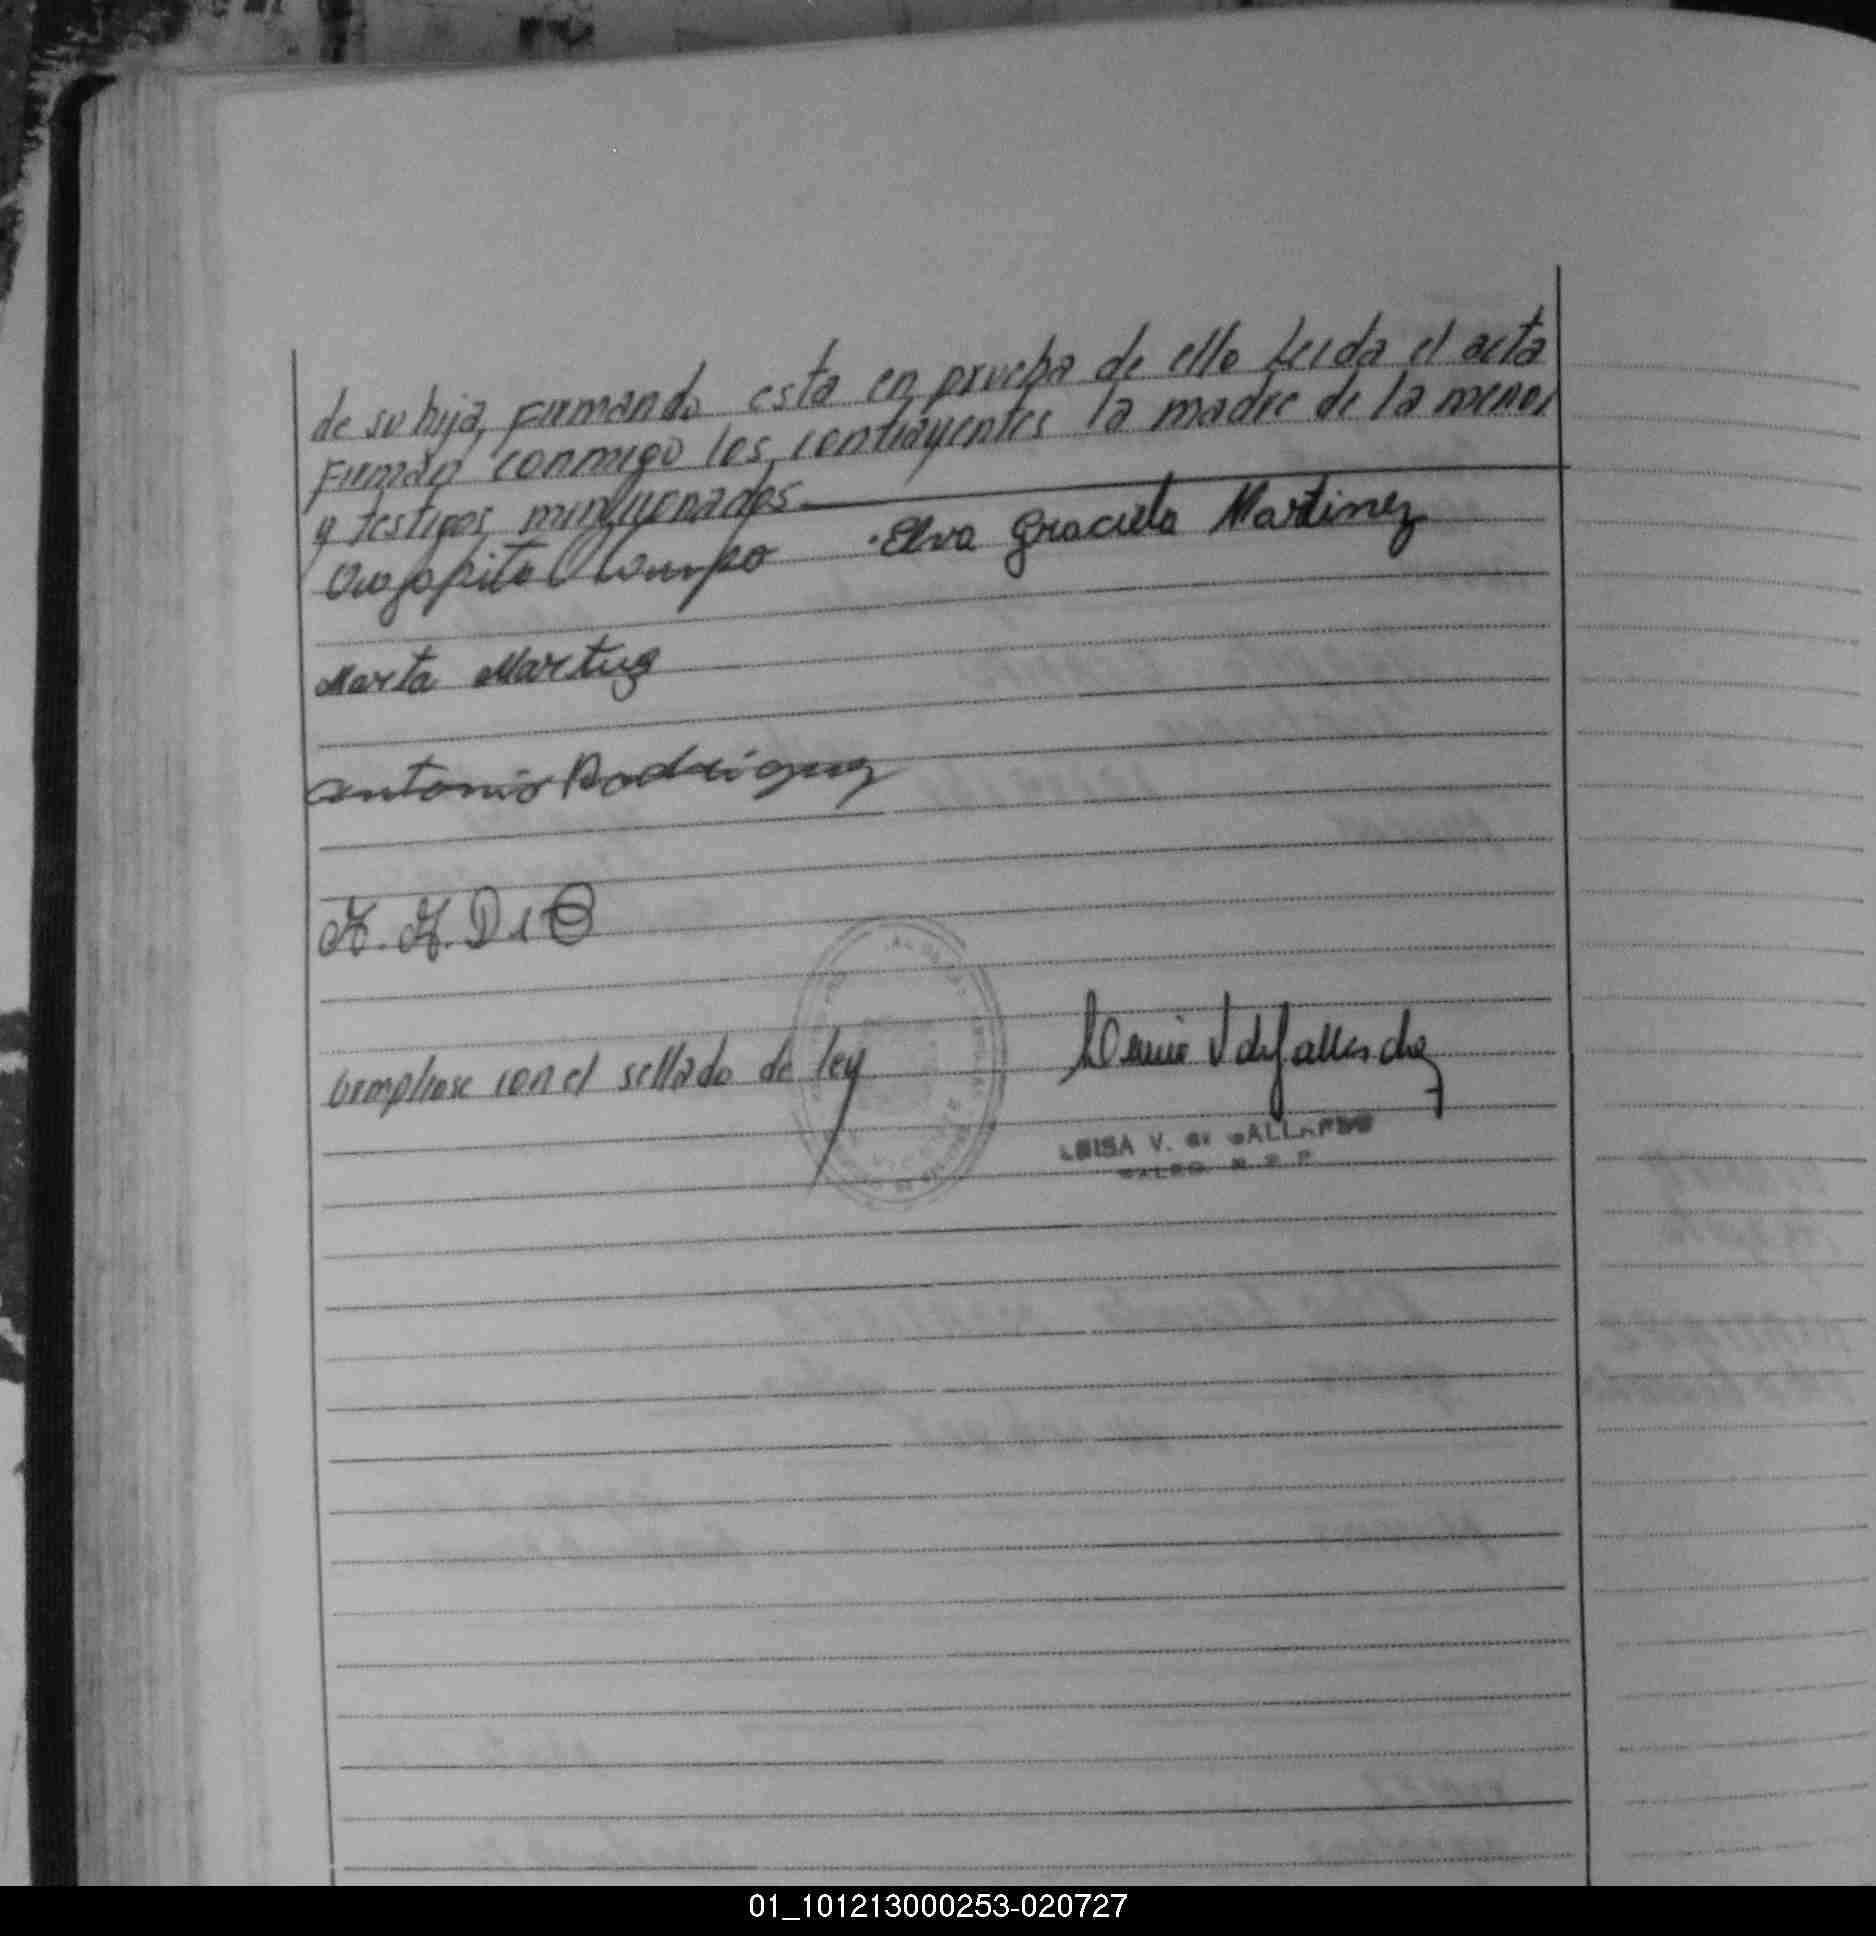 de su hija, Firmando esta en prueba de ello Leida el acta
Firman conmigo los contrayentes la madre de la menor
y testigos mencionados
Ocampo Elva Graciela Martinez
Marta Martinez
Antonio Rodriguez
cumplrase con el sellado de ley
LUISA V. de GALLARDO
01_101213000253-020727